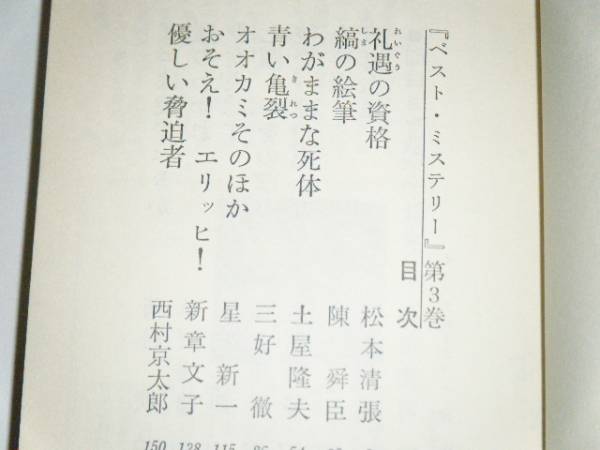 『ベスト・ミステリー』第3巻
目次
礼遇の資格 松本清張
れいぐう
縞の絵筆 陳舜臣
しま
わがままな死体 土屋隆夫
青い亀裂 三好徹
きれつ
オオカミそのほか 星新一 115
おそえ! エリッヒ! 新章文子 128
優しい脅迫者 西村京太郎 150